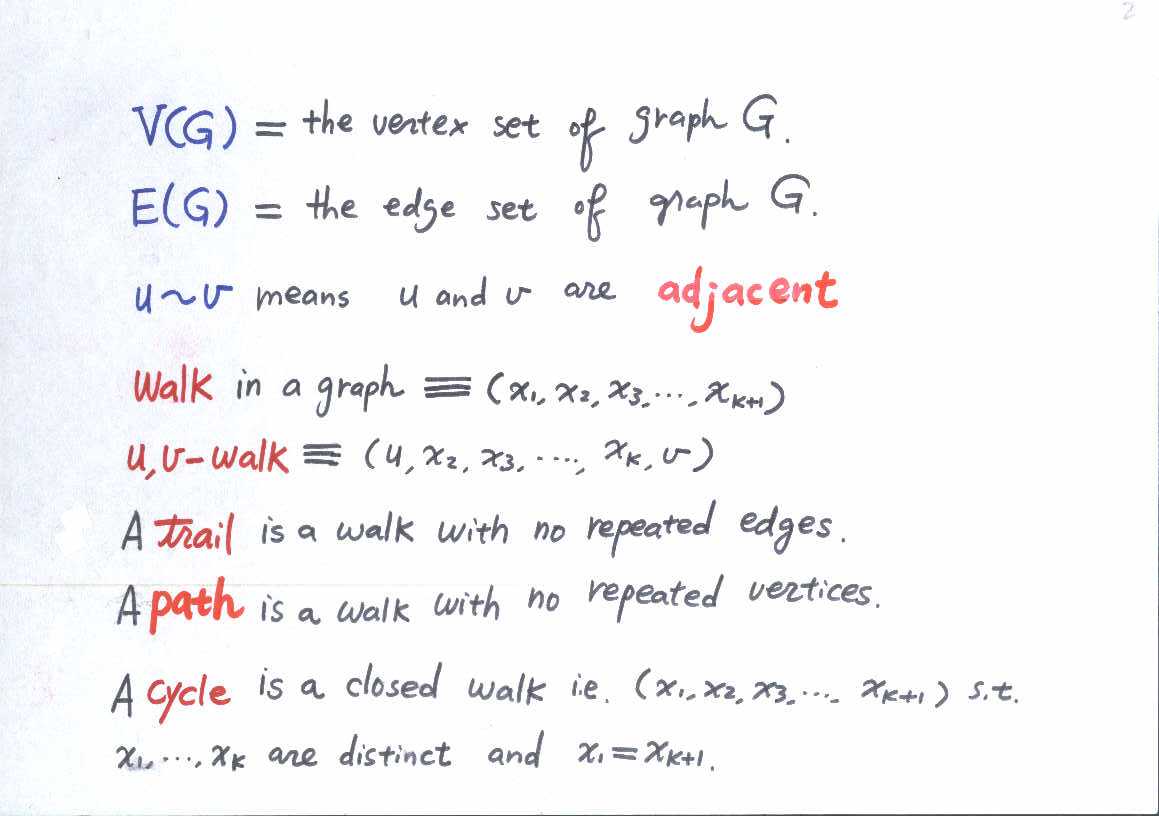 2
V(G) = the vertex set of graph G.
E(G) = the edge set of graph G.
u ~ v means u and v are adjacent
Walk in a graph ≡ (x₁, x₂, x₃, ..., xₖ₊₁)
u, v-walk ≡ (u, x₂, x₃, ...., xₖ, v)
A trail is a walk with no repeated edges.
A path is a walk with no repeated vertices.
A cycle is a closed walk i.e. (x₁, x₂, x₃, ..., xₖ₊₁) s.t.
x₁, ..., xₖ are distinct and x₁ = xₖ₊₁.